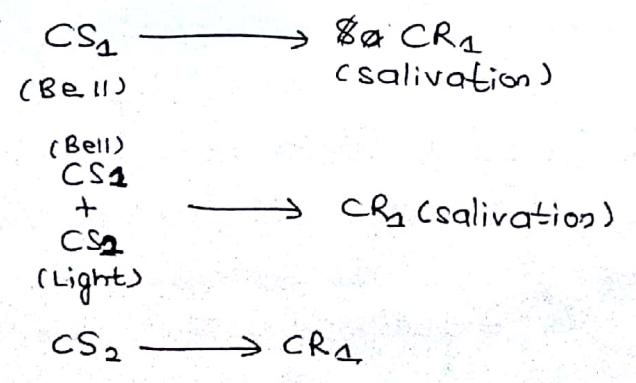 CS₁ → CR₁
(Bell) (salivation)
(Bell)
CS1
+ → CR₁ (salivation)
CS2
(Light)
CS₂ → CR₁